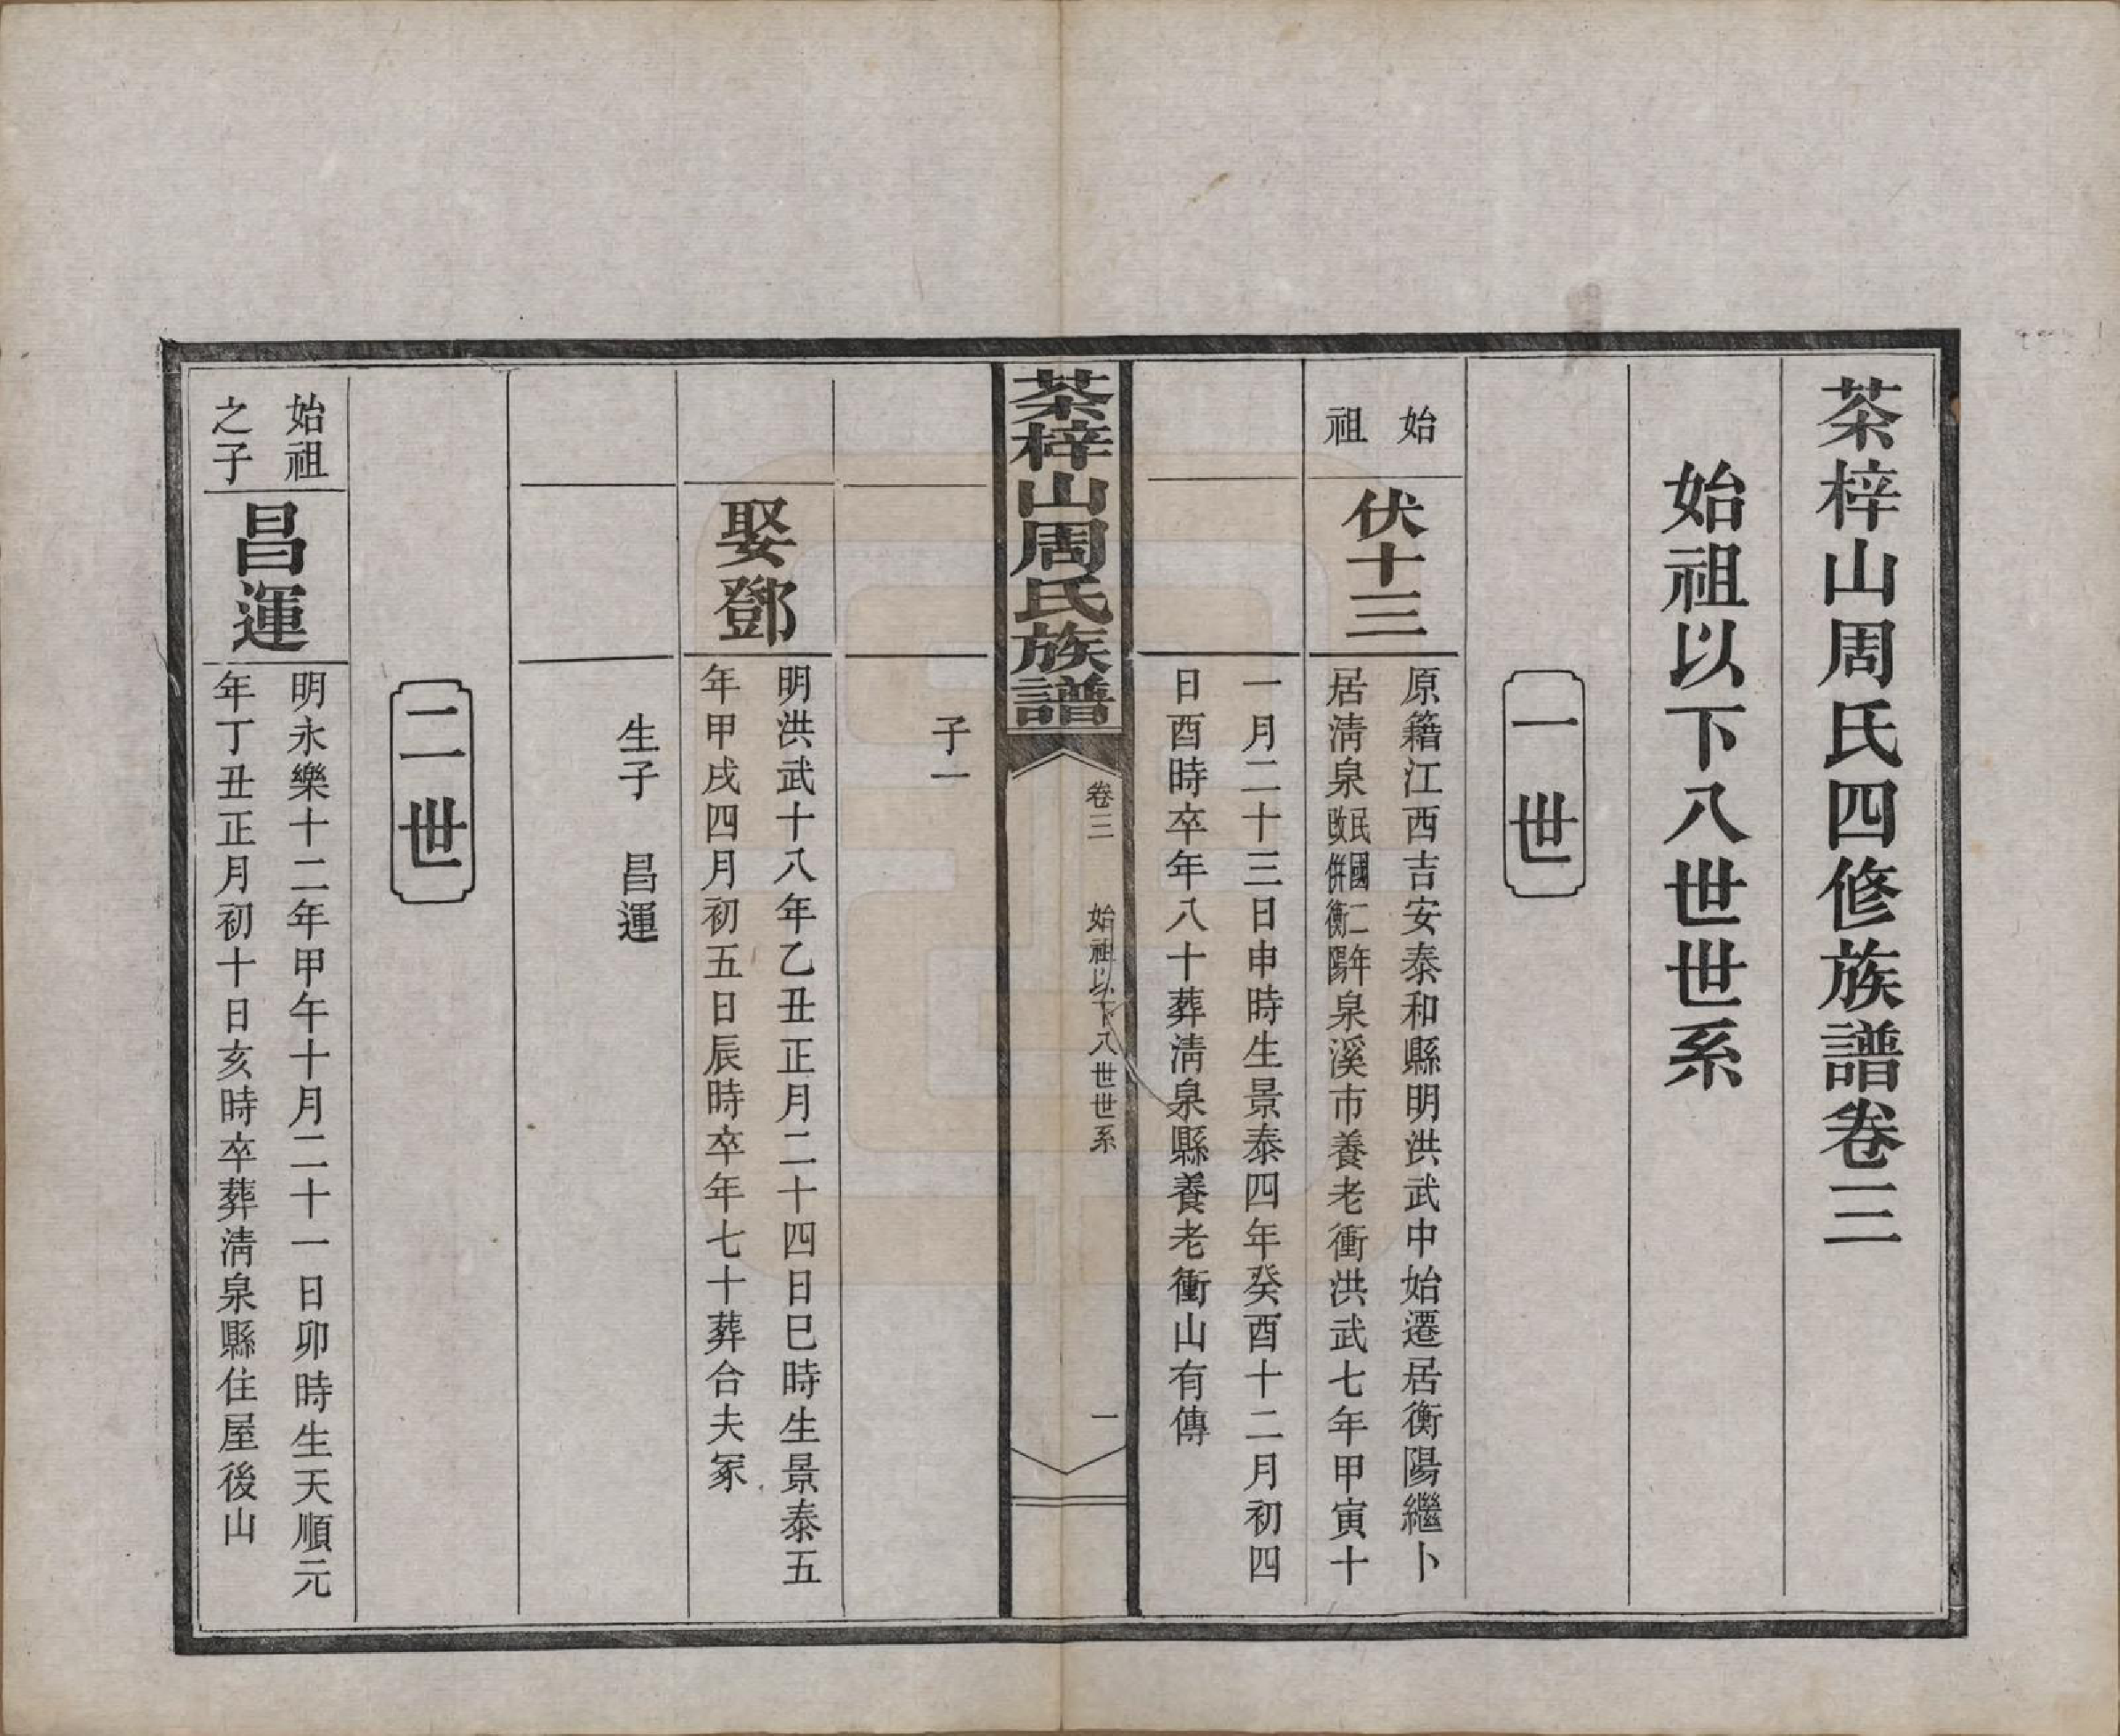 茶梓山周氏四修族譜卷三
始祖以下八世世系
一世
始
祖
伏十三
原籍江西吉安泰和縣明洪武中始遷居衡陽繼卜
居淸泉民國二年改併衡陽泉溪市養老衝洪武七年甲寅十
一月二十三日申時生景泰四年癸酉十二月初四
日酉時卒年八十葬淸泉縣養老衝山有傳
茶梓山周氏族譜
卷三
始祖以下八世世系
一
子一
娶鄧
明洪武十八年乙丑正月二十四日巳時生景泰五
年甲戌四月初五日辰時卒年七十葬合夫冢
生子 昌運
二世
始祖
之子
昌運
明永樂十二年甲午十月二十一日卯時生天順元
年丁丑正月初十日亥時卒葬淸泉縣住屋後山